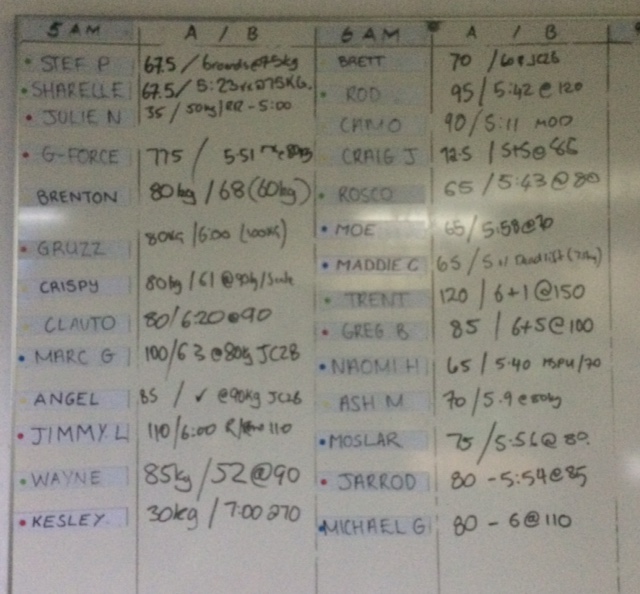 5 AM A / B
STEF P 67.5 / 6rounds@75kg
SHARELLE 67.5 / 5:23 @75KG.
JULIE N 35 / 50kg/RR - 5:00
G-FORCE 775 / 5:51
BRENTON 80kg / 68 (60kg)
GRUZZ 80KG / 6:00 (100KG)
CRISPY 80kg / 61 @90kg/
CLAUTO 80/620@90
MARC G 100/63@80kg JC2B
ANGEL 85 / ✓ @90KG JC2B
JIMMY L 110/6:00 110
WAYNE 85kg / 52@90
KESLEY. 30kg / 7:00 @70
6 AM A / B
BRETT 70 / JC2B
ROD 95 / 5:42 @ 120
CAMO 90 / 5:11 MOD
CRAIG J 72.5 / 5+5@85
ROSCO 65 / 5:43 @ 80
MOE 65 / 5:58@70
MADDIE C 65 / 5:11 Deadlift (70kg)
TRENT 120 / 6+1 @150
GREG B 85 / 6+5@100
NAOMI H 65 / 5:40 HSPU/70
ASH M 70 / 5.9 @80kg
MOSLAR 75 / 5:56@80.
JARROD 80 - 5:54@85
MICHAEL G 80 - 6@110